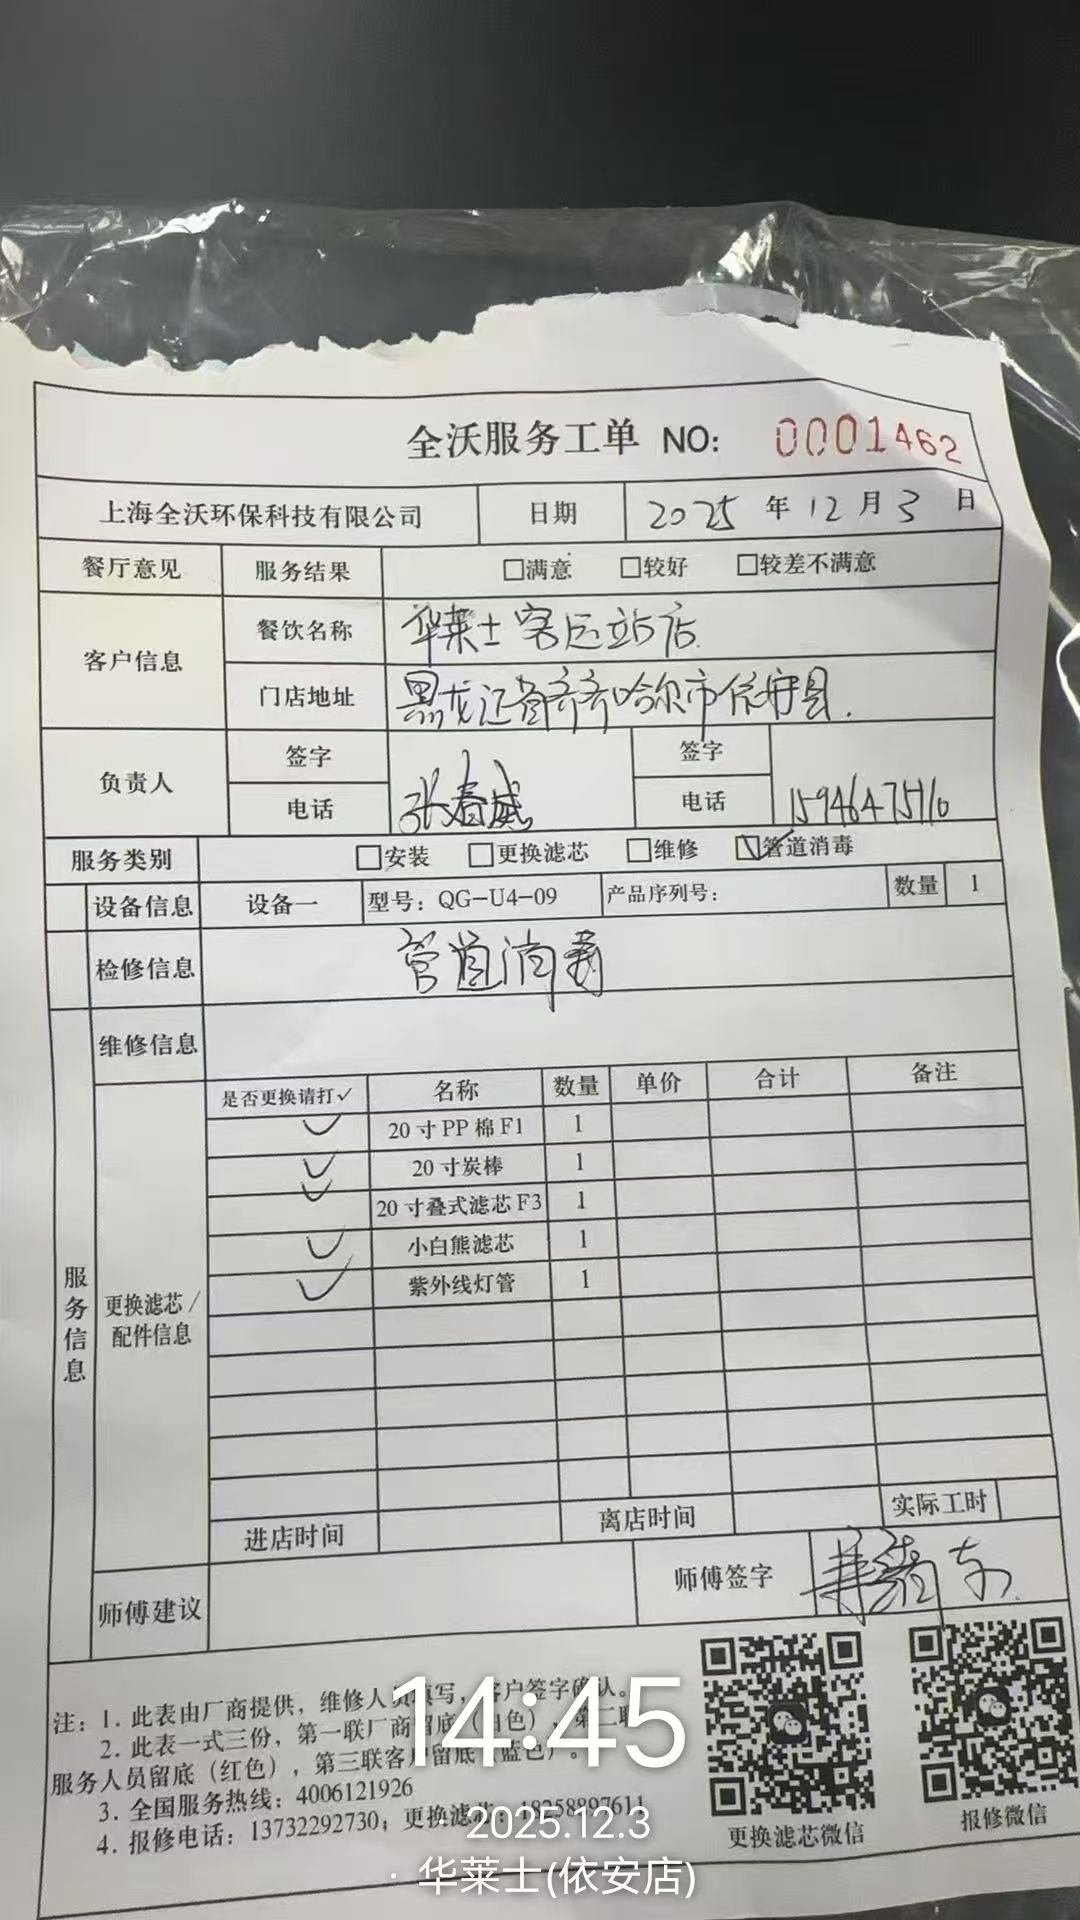 全沃服务工单 NO: 0001462
上海全沃环保科技有限公司 日期 2025 年 12 月 3 日
餐厅意见 服务结果 □满意 □较好 □较差不满意
客户信息 餐饮名称 华莱士客运站店
门店地址 黑龙江省齐齐哈尔市依安县.
负责人 签字 签字
电话 张春威 电话 15946475110
服务类别 □安装 □更换滤芯 □维修 ☑管道消毒
设备信息 设备一 型号: QG-U4-09 产品序列号: 数量 1
检修信息 管道消毒
维修信息
是否更换请打✓ 名称 数量 单价 合计 备注
✓ 20寸PP棉F1 1
✓ 20寸炭棒 1
✓ 20寸叠式滤芯F3 1
✓ 小白熊滤芯 1
✓ 紫外线灯管 1
服务信息
更换滤芯/
配件信息
进店时间 离店时间 实际工时
师傅建议 师傅签字
注: 1. 此表由厂商提供, 维修人员填写, 客户签字确认。
2. 此表一式三份, 第一联厂商留底(白色), 第二联
服务人员留底(红色), 第三联客户留底(蓝色)。
3. 全国服务热线: 4006121926
4. 报修电话: 13732292730; 更换滤芯: 18258897611
更换滤芯微信 报修微信
14:45
2025.12.3
· 华莱士(依安店)